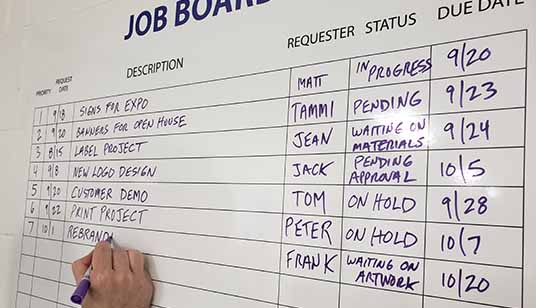 JOB BOARD
PRIORITY REQUEST DATE DESCRIPTION REQUESTER STATUS DUE DATE
1 9/18 SIGNS FOR EXPO MATT IN PROGRESS 9/20
2 9/20 BANNERS FOR OPEN HOUSE TAMMI PENDING 9/23
3 8/15 LABEL PROJECT JEAN WAITING ON MATERIALS 9/24
4 9/8 NEW LOGO DESIGN JACK PENDING APPROVAL 10/5
5 9/20 CUSTOMER DEMO TOM ON HOLD 9/28
6 9/22 PRINT PROJECT PETER ON HOLD 10/7
7 10/1 REBRAND FRANK WAITING ON ARTWORK 10/20